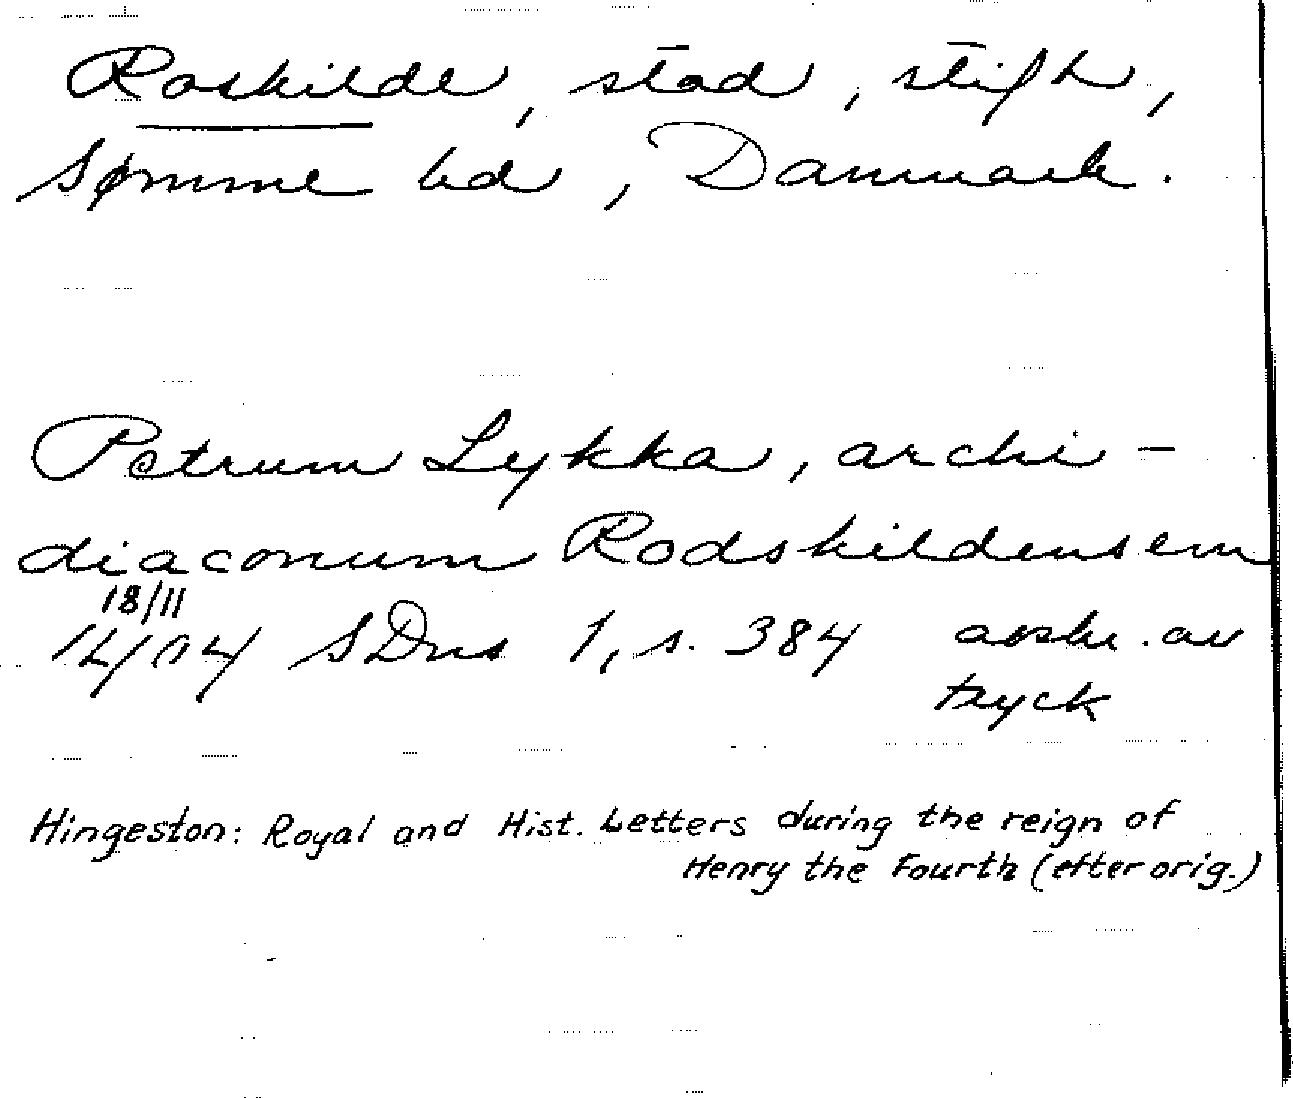 Roskilde, stad, stift,
Sømme hd, Danmark.
Petrum Lykka, archi-
diaconum Rodskildensem
18/11
1404 SDns 1, s. 384 avskr. av
tryck
Hingeston: Royal and Hist. Letters during the reign of
Henry the Fourth (efter orig.)